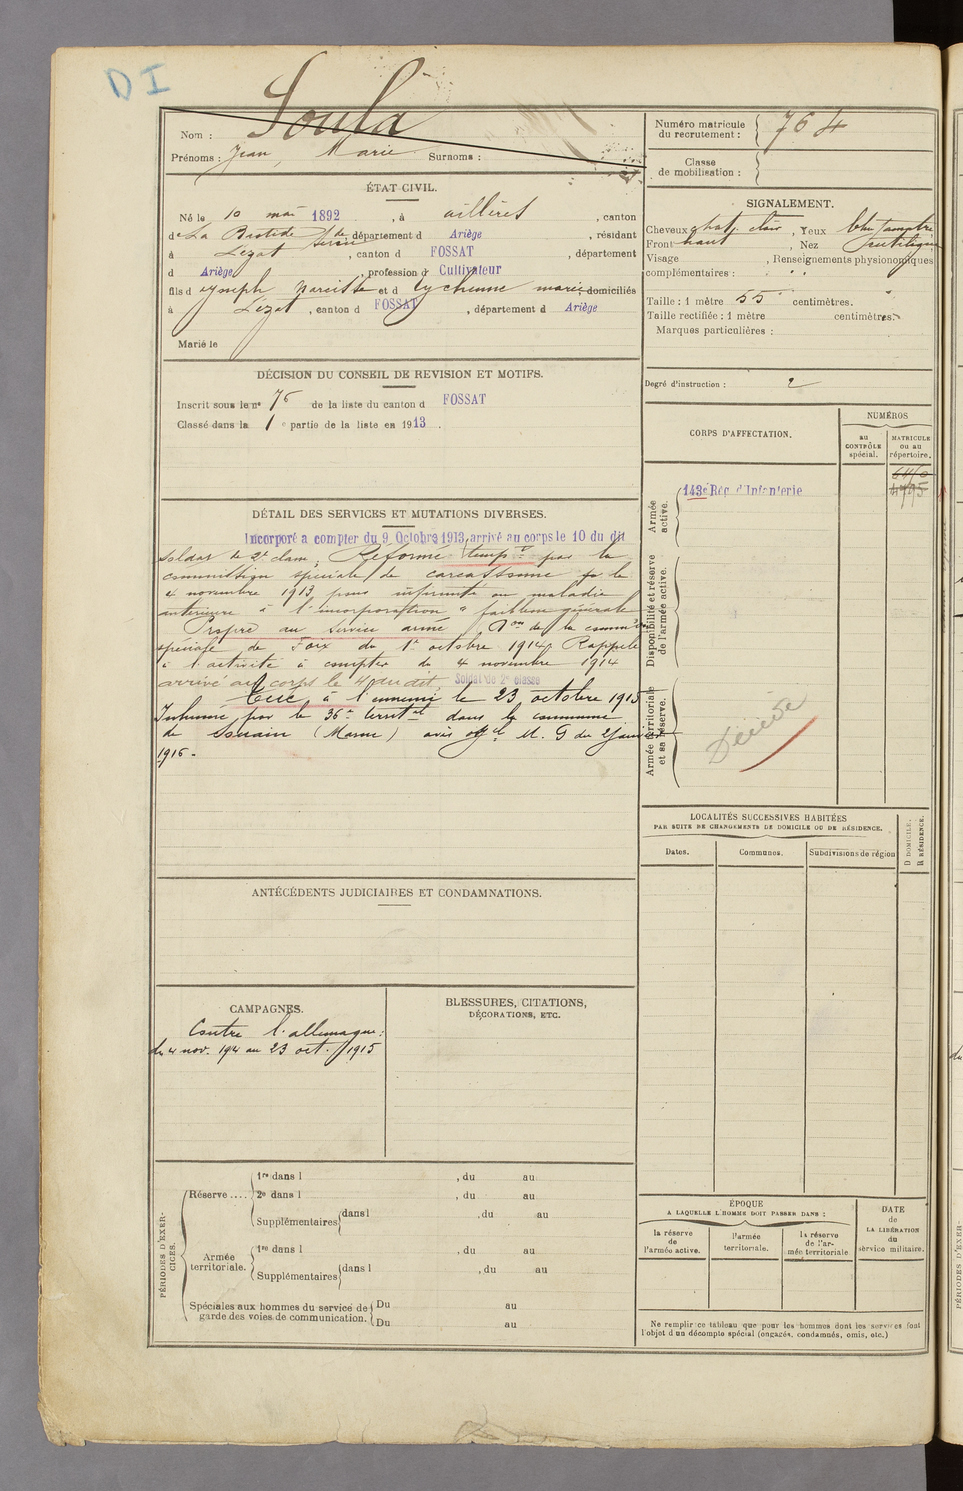 DI
Nom : Soula
Prénoms : Jean, Marie Surnoms :
Numéro matricule du recrutement : 764
Classe de mobilisation :
ÉTAT CIVIL.
Né le 10 mai 1892, à Aillères, canton
de La Bastide de Sérou, département d Ariège, résidant
à Lézat, canton d FOSSAT, département
d Ariège, profession d Cultivateur
fils d Joseph Narcisse et d marie domiciliés
à Lézat, canton d FOSSAT, département d Ariège
Marié le
SIGNALEMENT.
Cheveux chat. clair, Yeux bleu
Front haut, Nez rectiligne
Visage , Renseignements physionomiques
complémentaires : " "
Taille : 1 mètre 55 centimètres.
Taille rectifiée : 1 mètre centimètres.
Marques particulières :
Degré d'instruction : 2
DÉCISION DU CONSEIL DE REVISION ET MOTIFS.
Inscrit sous le n° 76 de la liste du canton d FOSSAT
Classé dans la 1e partie de la liste en 1913.
CORPS D'AFFECTATION.
NUMÉROS
au CONTRÔLE spécial.
MATRICULE ou au répertoire.
Armée active.
143e Rég. d'Infanterie
4795
Disponibilité et réserve de l'armée active.
Armée territoriale et sa réserve.
Décédé
DÉTAIL DES SERVICES ET MUTATIONS DIVERSES.
Incorporé a compter du 9 Octobre 1913, arrivé au corps le 10 du dit
soldat de 2e classe, Réformé tempre par la
commission spéciale de carcassonne le
4 novembre 1913 pour infirmité ou maladie
antérieure à l'incorporation " faiblesse générale
Propre au service armé don de la comm'on
spéciale de Foix du 1er octobre 1914, Rappelé
à l'activité à compter du 4 novembre 1914
arrivé au corps le 4 du dit, Soldat de 2e classe
Tué à l'ennemi le 23 octobre 1915
Inhumé par le 36e territal dans la commune
de Souain (Marne) avis offel M. G du 2 janvier
1916 -
LOCALITÉS SUCCESSIVES HABITÉES
PAR SUITE DE CHANGEMENTS DE DOMICILE OU DE RÉSIDENCE.
Dates. Communes. Subdivisions de région
D DOMICILE. R RÉSIDENCE.
ANTÉCÉDENTS JUDICIAIRES ET CONDAMNATIONS.
CAMPAGNES.
Contre l'allemagne :
du 4 nov. 1914 au 23 oct. 1915
BLESSURES, CITATIONS,
DÉCORATIONS, ETC.
PÉRIODES D'EXERCICES.
Réserve .... 1re dans l , du au
2e dans l , du au
Supplémentaires dans l , du au
Armée territoriale. 1re dans l , du au
Supplémentaires dans l , du au
Spéciales aux hommes du service de garde des voies de communication. Du au
Du au
ÉPOQUE
A LAQUELLE L'HOMME DOIT PASSER DANS :
la réserve de l'armée active.
l'armée territoriale.
la réserve de l'armée territoriale
DATE de LA LIBÉRATION du service militaire.
Ne remplir ce tableau que pour les hommes dont les services font
l'objet d'un décompte spécial (engagés, condamnés, omis, etc.)
PÉRIODES D'EXER-